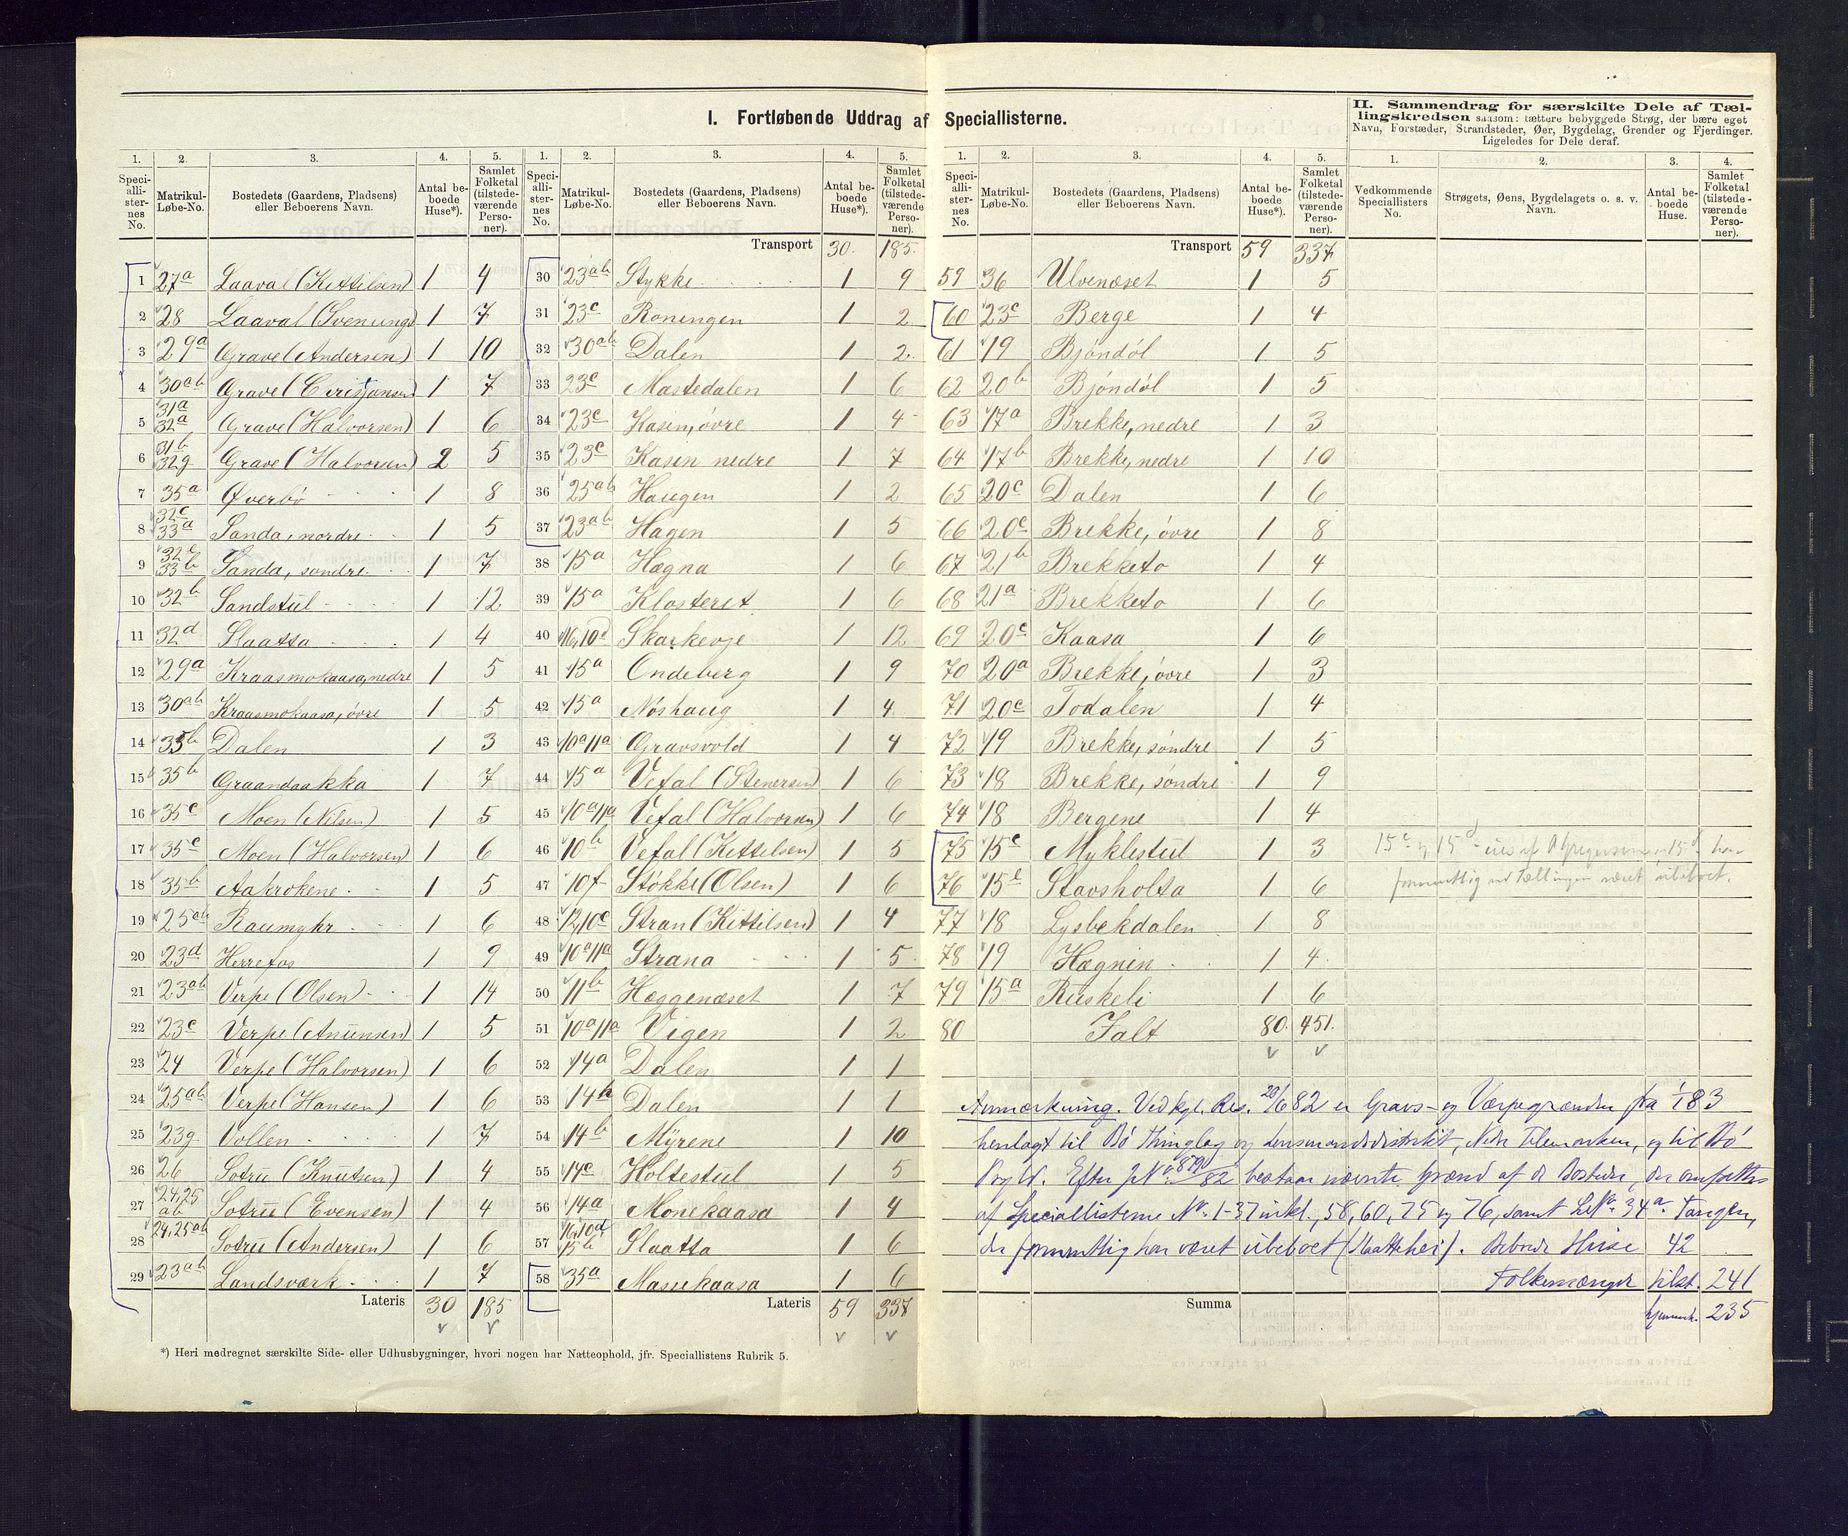 I. Fortløbende Uddrag af Speciallisterne.
II. Sammendrag for særskilte Dele af Tæl-
lingskredsen saasom: tættere bebyggede Strøg, der bære eget
Navn, Forstæder, Strandsteder, Øer, Bygdelag, Grender og Fjerdinger.
Ligeledes for Dele deraf.
1. 2. 3. 4. 5.
Speciallisternes No. Matrikul-Løbe-No. Bostedets (Gaardens, Pladsens) eller Beboerens Navn. Antal beboede Huse*). Samlet Folketal (tilstedeværende Personer).
1 27a Laaval (Kittilsen) 1 4
2 28 Laaval (Svenungs 1 7
3 29a Grave (Andersen) 1 10
4 30ab Grave (Cristjansen 1 7
5 31a 32a Grave (Halvorsen) 1 6
6 31b 32g Grave (Halvorsen) 2 5
7 35a Øverbö 1 8
8 32c 33a Sanda, nordre 1 5
9 32e 33b Sanda, søndre 1 7
10 32b Sandstul 1 12
11 32d Slaatta 1 4
12 29a Kraasmokaasa, nedre 1 5
13 30ab Kraasmokaasa, øvre 1 5
14 35b Dalen 1 3
15 35b Graandaakka 1 7
16 35c Moen (Nilsen) 1 5
17 35c Moen (Halvorsen) 1 6
18 35b Aakrokene 1 5
19 25ab Raumyhr 1 6
20 23d Herrefos 1 9
21 23ab Verpe (Olsen) 1 14
22 23c Verpe (Anunsen) 1 5
23 24 Verpe (Halvorsen) 1 6
24 25ab Verpe (Hansen) 1 6
25 23g Vollen 1 7
26 26 Sotru (Knutsen) 1 4
27 24,25 ab Sotru (Evensen) 1 4
28 24,25ab Sotru (Andersen) 1 6
29 23ab Landsværk 1 7
Lateris 30 185
*) Heri medregnet særskilte Side- eller Udhusbygninger, hvori nogen har Natteophold, jfr. Speciallistens Rubrik 5.
1. 2. 3. 4. 5.
Speciallisternes No. Matrikul-Løbe-No. Bostedets (Gaardens, Pladsens) eller Beboerens Navn. Antal beboede Huse*). Samlet Folketal (tilstedeværende Personer).
Transport 30. 185.
30 23ab Stykke 1 9
31 23c Roningen 1 2
32 30ab Dalen 1 2.
33 23c Mastedalen 1 6
34 23c Kasen, øvre 1 4
35 23c Kasen nedre 1 7
36 25ab Haugen 1 2
37 23ab Hagen 1 5
38 15a Hægna 1 6
39 15a Klosteret 1 6
40 16,10d Skarkevje 1 12
41 15a Ondeberg 1 9
42 15a Nöshaug 1 4
43 10a11a Gravsvold 1 4
44 15a Vefal (Stenersen) 1 6
45 10a11a Vefal (Halvorsen) 1 6
46 10b Vefal (Kittelsen) 1 5
47 10f Stökke (Olsen) 1 6
48 12,10c Stran (Kittilsen) 1 4
49 10a11a Strana 1 5
50 11b Hæggenæset 1 7
51 10a11a Vigen 1 2
52 14a Dalen 1 1
53 14b Dalen 1 1
54 14b Myrene 1 10
55 14c Holtestul 1 5
56 14a Monekaasa 1 4
57 16,10d 15b Slaatta 1 6
58 35a Massekaasa 1 6
Lateris 59 337
1. 2. 3. 4. 5.
Speciallisternes No. Matrikul-Løbe-No. Bostedets (Gaardens, Pladsens) eller Beboerens Navn. Antal beboede Huse*). Samlet Folketal (tilstedeværende Personer).
Transport 59 337
59 36 Ulvenæset 1 5
60 23c Berge 1 4
61 19 Bjöndöl 1 5
62 20b Bjöndöl 1 5
63 17a Brekke, nedre 1 3
64 17b Brekke, nedre 1 10
65 20c Dalen 1 6
66 20c Brekke, øvre 1 8
67 21b Brekketo 1 4
68 21a Brekketo 1 6
69 20c Kaasa 1 6
70 20a Brekke, øvre 1 3
71 20c Todalen 1 4
72 19 Brekke, söndre 1 5
73 18 Brekke, söndre 1 9
74 18 Bergene 1 4
75 15c Myklestul 1 3
76 15e Stavsholta 1 6
77 18 Lysbekdalen 1 8
78 19 Hægnin 1 4
79 15a Ruskeli 1 6
80 Ialt 80. 451.
Anmærkning. Ved kgl. Res. 20/6 82 er Gravs- og Værpegrænden fra 1/1 83
henlagt til Bö Thinglag og Lensmandsdistrikt, Nedre Telemarken, og til Bö
Efter bestaar nævnte Grænd af de Bosteder, der omfattes
af Speciallisterne No. 1-37 inkl., 58, 60, 75 og 76, samt L.No. 34a Tangen,
der formentlig har været ubeboet (Slaattehei). Beboede Huse 42
Folkemængde tilst. 241
hjemmeh. 235
Summa
1. 2. 3. 4.
Vedkommende Speciallisters No. Strøgets, Øens, Bygdelagets o. s. v. Navn. Antal beboede Huse. Samlet Folketal (tilstedeværende Personer).
15c og 15d 15d har
formentlig ved Tællingen været ubeboet.